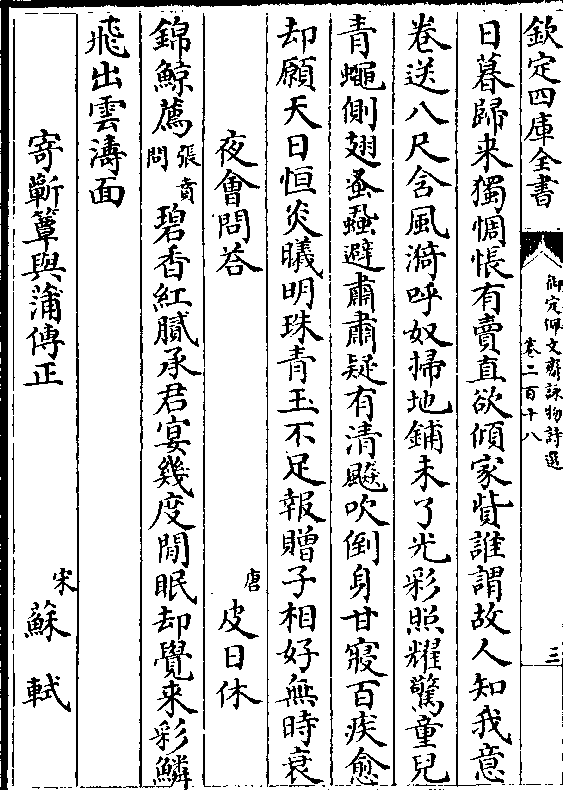 欽定四庫全書
御定佩文齋詠物詩選
卷二百十八
三
日暮歸来獨惆悵有賣直欲傾家貲誰謂故人知我意
卷送八尺含風漪呼奴掃地鋪未了光彩照耀驚童兒
青蠅側翅蚤蝨避肅肅疑有清飈吹倒身甘寢百疾愈
却願天日恒炎曦明珠青玉不足報贈子相好無時衰
夜會問荅
唐
皮日休
錦鯨薦張賁問碧香紅膩承君宴幾度閒眠却覺来彩鱗
飛出雲濤面
寄蘄簟與蒲傳正
宋
蘇軾